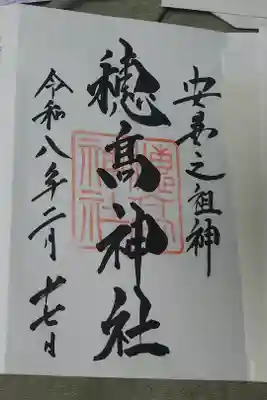 安曇之祖神
穂髙神社
令和八年二月十七日